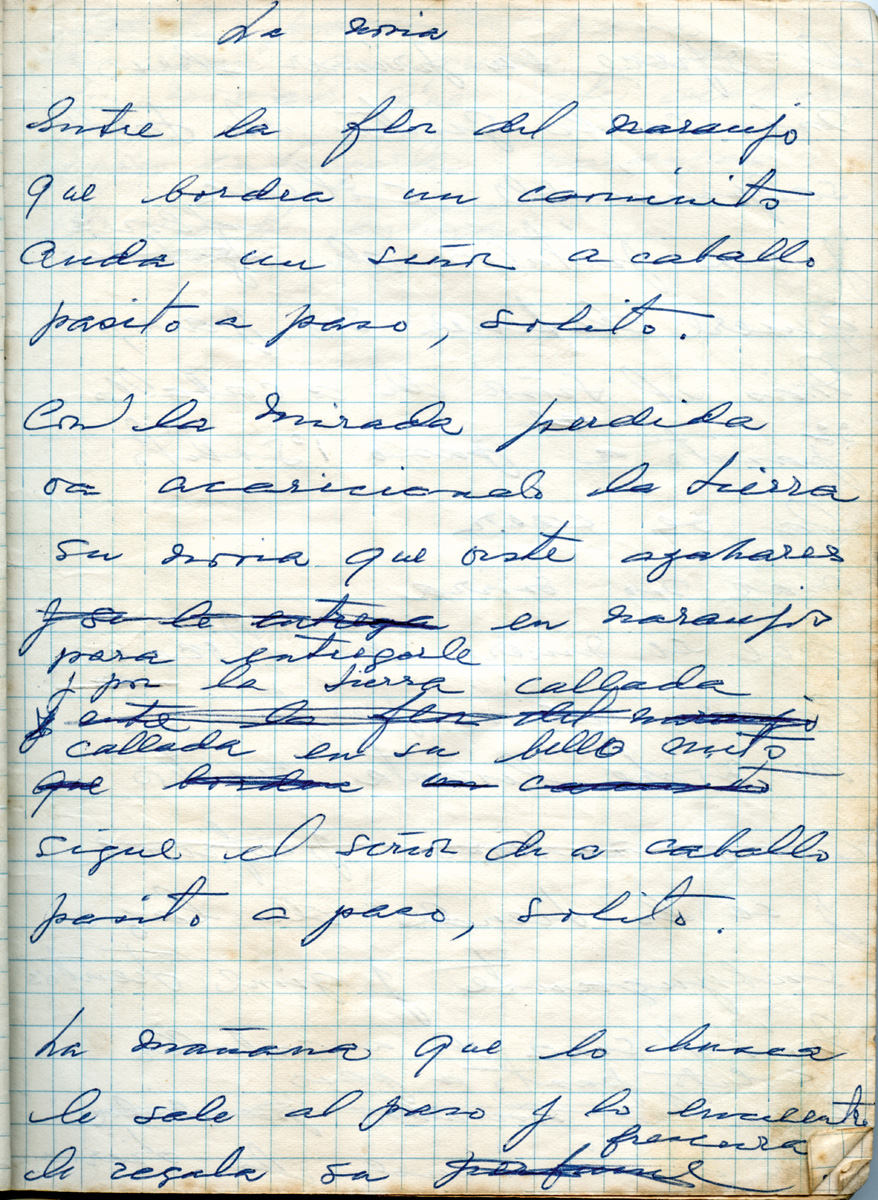 La novia
Entre la flor del naranjo
que bordea un caminito
anda un señor a caballo
pasito a paso, solito.
Con la mirada perdida
va acariciando la tierra
su novia que viste azahares
y se le entrega en naranjos
para entregarle
y por la tierra callada
y entre la flor del naranjo
callada en su bello mito
que bordea un caminito
sigue el señor de a caballo
pasito a paso, solito.
La mañana que lo busca
le sale al paso y lo encuentra
frescura
le regala su perfume